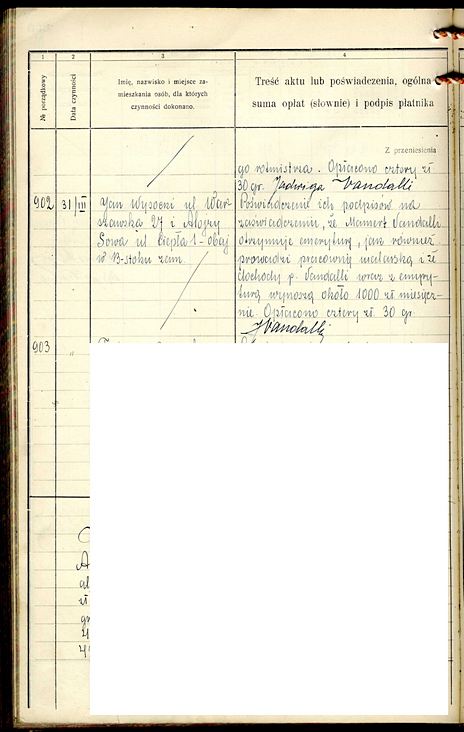 1 2 3 4
№ porządkowy
Data czynności
Imię, nazwisko i miejsce za-
mieszkania osób, dla których
czynności dokonano.
Treść aktu lub poświadczenia, ogólna
suma opłat (słownie) i podpis płatnika
Z przeniesienia
go rotmistrza. Opłacono cztery zł
30 gr. Jadwiga Vandalli
902 31/III Jan Wysocki ul. War-
szawska 27 i Alojzy
Sowa ul. Ciepła 1 - obaj
w B-stoku zam.
Poświadczenie ich podpisów na
zaświadczeniu, że Mamert Vandalli
otrzymuje emeryturę, jak również
prowadzi pracownię malarską i że
dochody p. Vandalli wraz z emery-
turą wynoszą około 1000 zł miesięcz-
nie. Opłacono cztery zł. 30 gr.
JVandalli
903 "
A
al
zł
gr